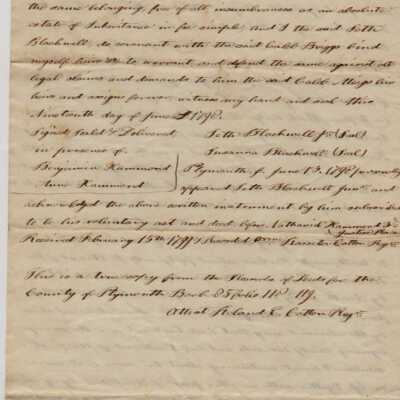 the same belonging free of all incumbrances as an absolute
estate of Inheritance in fee simple and I the said Seth
Blackwell do covenant with the said Caleb Briggs bind
myself heirs &c to warrant and defend the same against all
legal claims and demands to him the said Caleb his
heirs and assigns forever witness my hand and seal this
Nineteenth day of June 1798.
Signed Sealed & Delivered Seth Blackwell Jr (Seal)
in presence of Susanna Blackwell (Seal)
Benjamin Hammond Plymouth ss June 19. 1798 personally
Hammond appeared Seth Blackwell and
acknowledged the above written instrument by him subscribed
to be his voluntary act and deed before Nathaniel Hammond
Justice Peace
Received February 15th 1799 & recorded Rossiter Cotton Regr.
This is a true copy from the Records of Deeds for the
County of Plymouth Book 85 folio 118 119.
Attest Roland E. Cotton Regr.